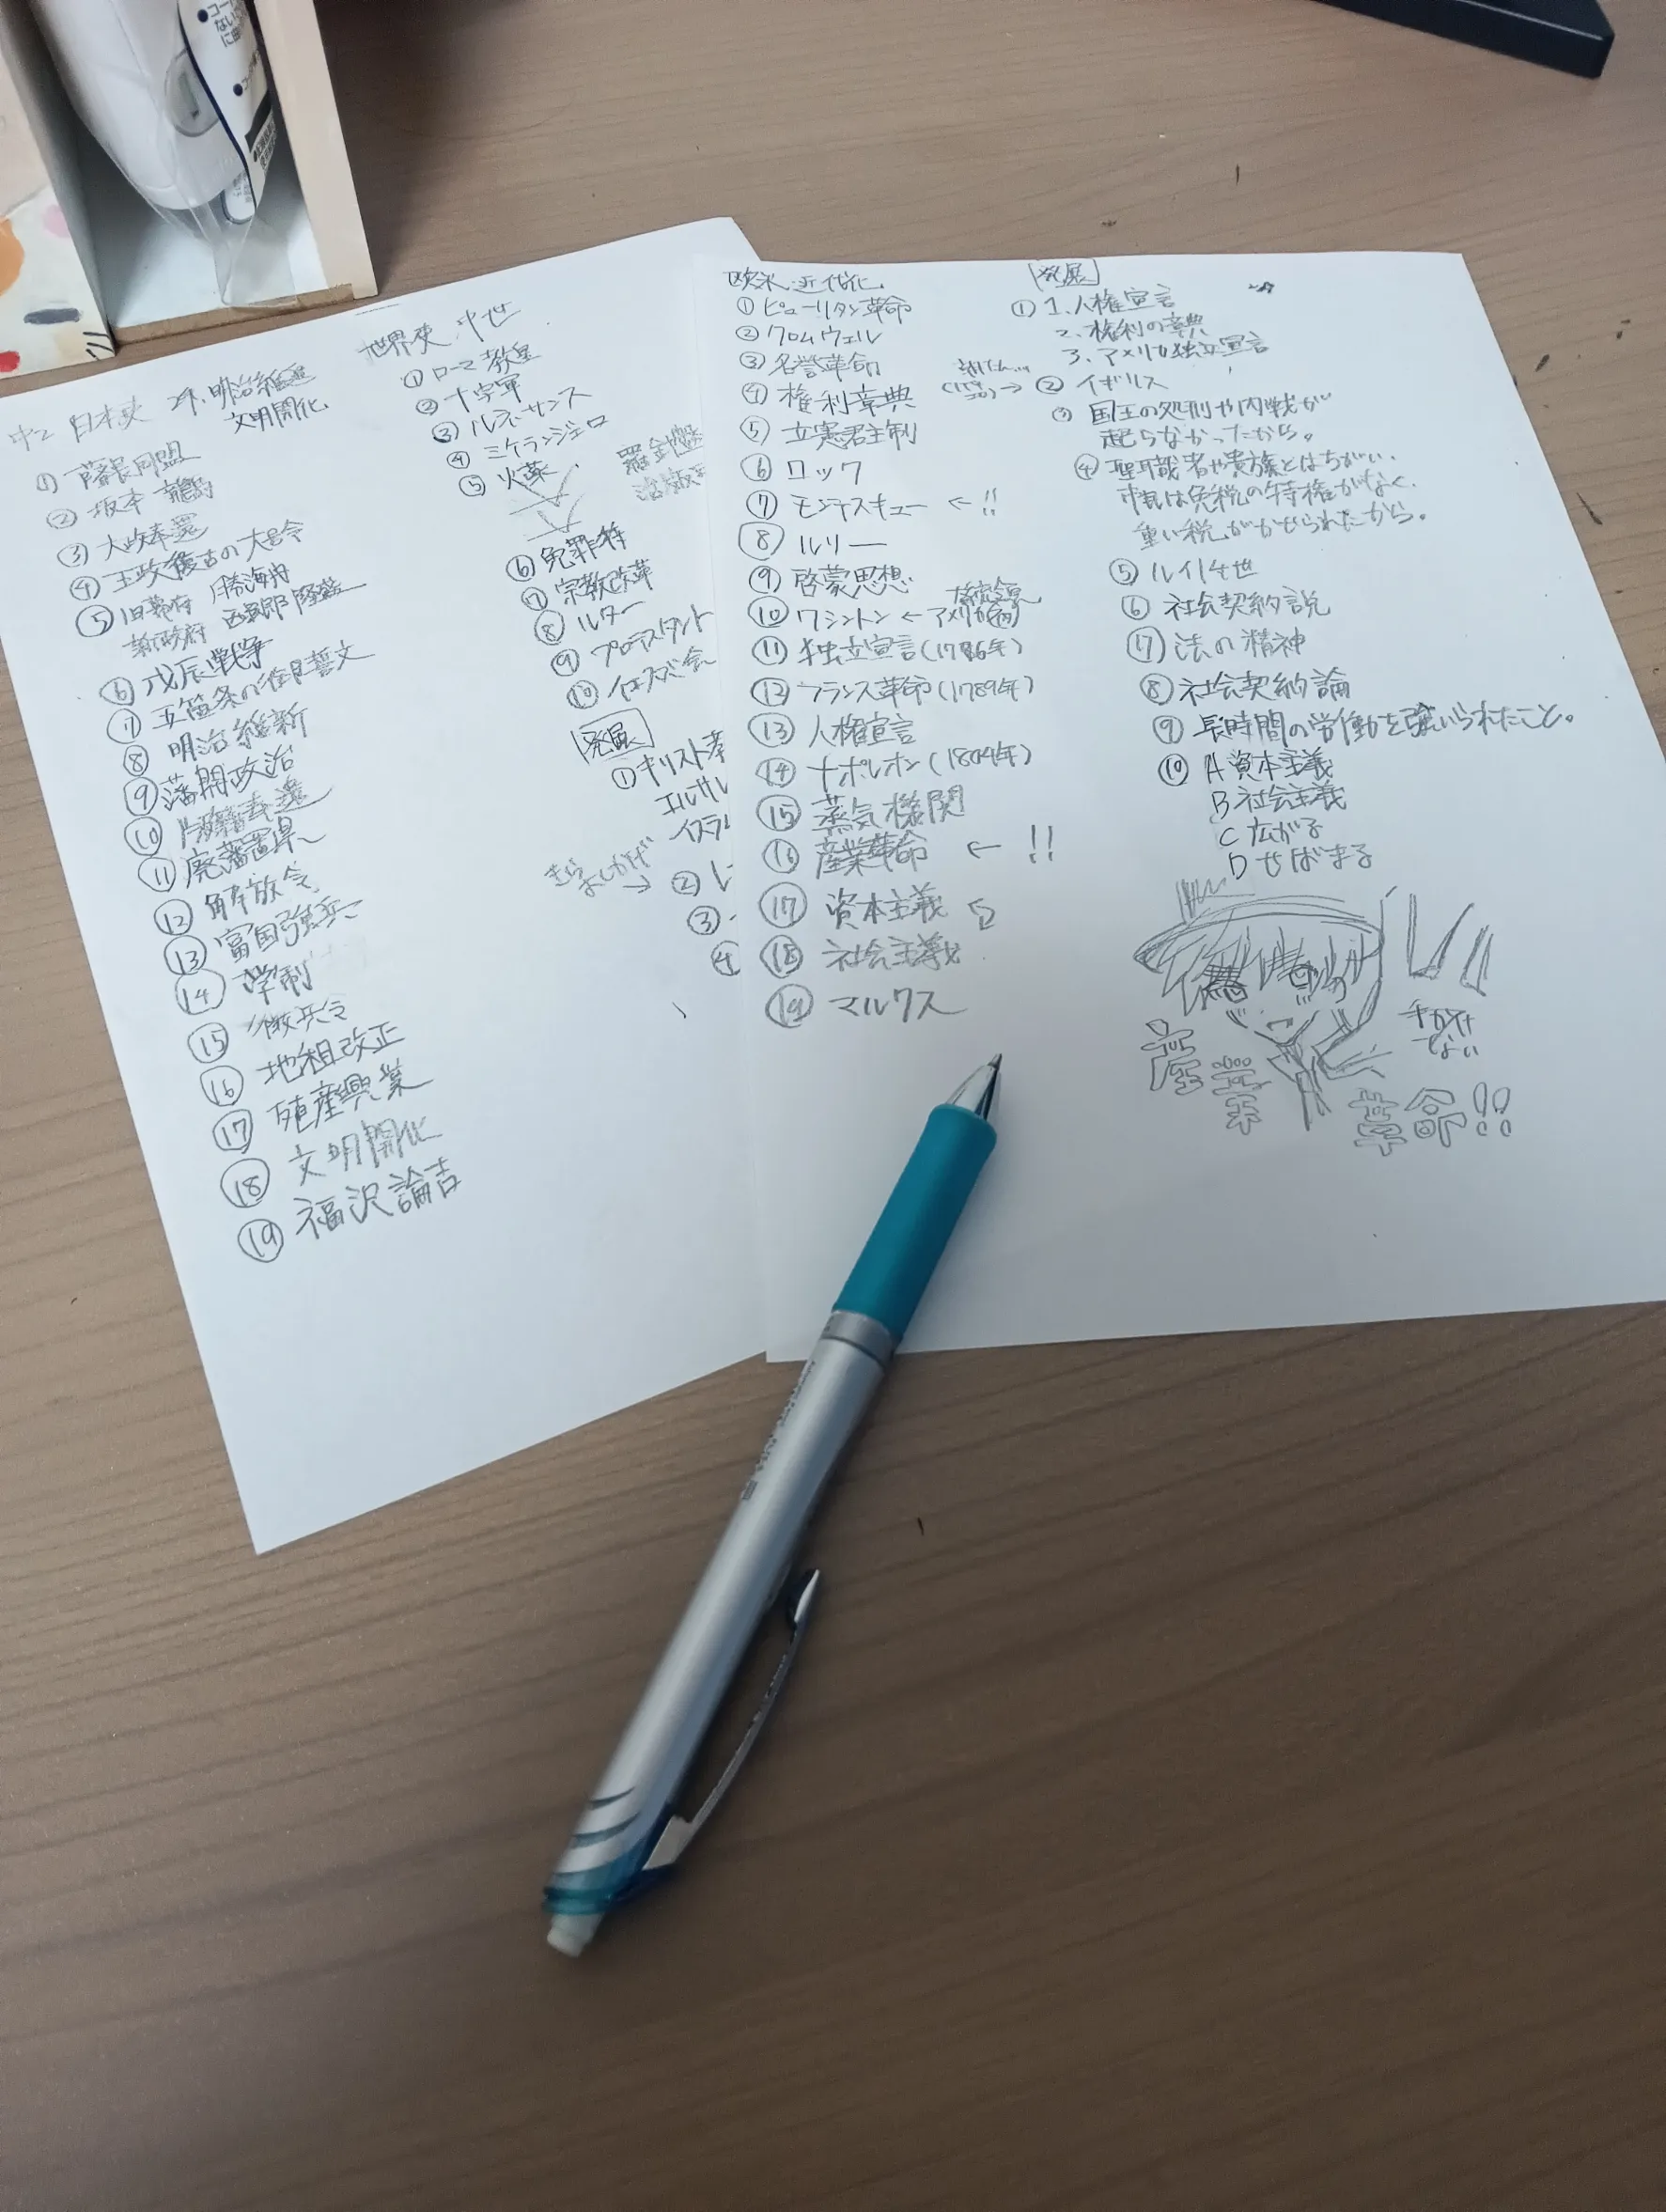 中2 日本史
24. 明治維新
文明開化
① 薩長同盟
② 坂本龍馬
③ 大政奉還
④ 王政復古の大号令
⑤ 旧幕府 勝海舟
新政府 西郷隆盛
⑥ 戊辰戦争
⑦ 五箇条の御誓文
⑧ 明治維新
⑨ 藩閥政治
⑩ 版籍奉還
⑪ 廃藩置県
⑫ 解放令
⑬ 富国強兵
⑭ 学制
⑮ 徴兵令
⑯ 地租改正
⑰ 殖産興業
⑱ 文明開化
⑲ 福沢諭吉
世界史 中世
① ローマ教皇
② 十字軍
③ ルネサンス
④ ミケランジェロ
⑤ 火薬
羅針盤
⑥ 免罪符
⑦ 宗教改革
⑧ ルター
⑨ プロテスタント
⑩ イエズス会
発展
① キリスト教
エルサレ
イスラ
②
③
④
欧米 近代化
① ピューリタン革命
② クロムウェル
③ 名誉革命
④ 権利章典
⑤ 立憲君主制
⑥ ロック
⑦ モンテスキュー ← !!
⑧ ルソー
⑨ 啓蒙思想
⑩ ワシントン ←
⑪ 独立宣言(1786年)
⑫ フランス革命(1789年)
⑬ 人権宣言
⑭ ナポレオン(1804年)
⑮ 蒸気機関
⑯ 産業革命 ← !!
⑰ 資本主義
⑱ 社会主義
⑲ マルクス
発展
① 1. 人権宣言
2. 権利の章典
3. アメリカ独立宣言
② イギリス
③ 国王の処刑や内戦が
起らなかったから。
④ 聖職者や貴族とはちがい、
市民は免税の特権がなく、
重い税がかせられたから。
⑤ ルイ14世
⑥ 社会契約説
⑦ 法の精神
⑧ 社会契約論
⑨ 長時間の労働を強いられたこと。
⑩ A 資本主義
B 社会主義
C 広がる
D せばまる
産業
革命!!